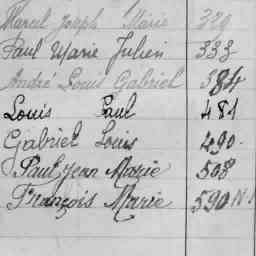 Marcel Joseph Marie 329
Paul Marie Julien 333
André Louis Gabriel 384
Louis Paul 481
Gabriel Louis 490
Paul Jean Marie 508
François Marie 590